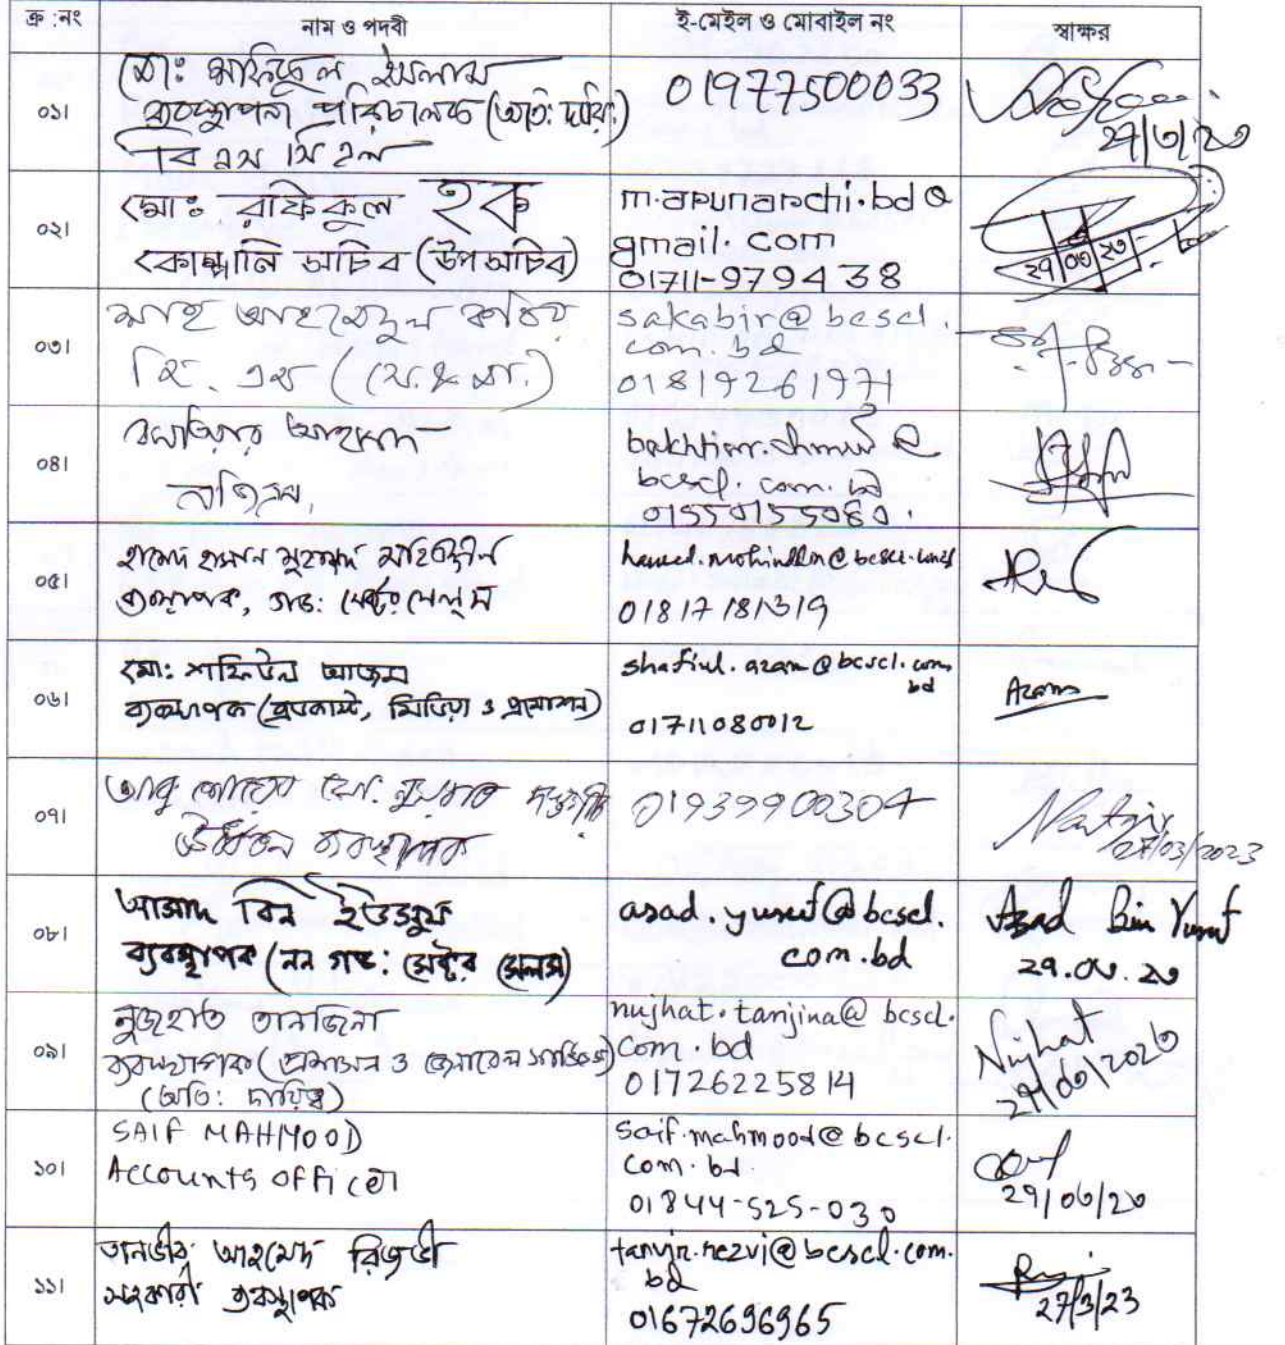 ক্র :নং
নাম ও পদবী
ই-মেইল ও মোবাইল নং
স্বাক্ষর
০১।
মোঃ শফিকুল ইসলাম
ব্যবস্থাপনা পরিচালক (অতি: দায়ি:)
বি এস সি এল
01977500033
২৭/৩/২৩
০২।
মোঃ রফিকুল হক
কোম্পানি সচিব (উপসচিব)
gmail. com
01711-979438
২৭/০৩/২৩
০৩।
শাহ আহমেদুল কবির
sakabir@bcscl.
com.bd
01819261971
০৪।
বখতিয়ার আহমেদ
bcscl. com. bd
01550155080.
০৫।
01817181319
০৬।
মো: শফিউল আজম
ব্যবস্থাপক (ব্রডকাস্ট, মিডিয়া ও প্রমোশন)
shafiul.azam@bcscl.com.
bd
01711080012
Azam
০৭।
ব্যবস্থাপক
01939900304
27/03/2023
০৮।
আসাদ বিন ইউসুফ
ব্যবস্থাপক (নন গভ: সেক্টর সেলস)
asad.yusuf@bcscl.
com.bd
Asad Bin Yusuf
২৭.০৩.২৩
০৯।
নুজহাত তানজিনা
ব্যবস্থাপক (প্রশাসন ও জেনারেল সার্ভিসেস)
(অতি: দায়িত্ব)
nujhat.tanjina@bcscl.
com.bd
01726225814
Nujhat
২৭/০৩/২০২৩
১০।
SAIF MAHMOOD
Accounts officer
saif.mahmood@bcscl.
com.bd
01844-525-030
২৭/০৩/২৩
১১।
তানভীর আহমেদ রিজভী
সহকারী ব্যবস্থাপক
tanvir.rezvi@bcscl.com.
bd
01672696965
27/3/23